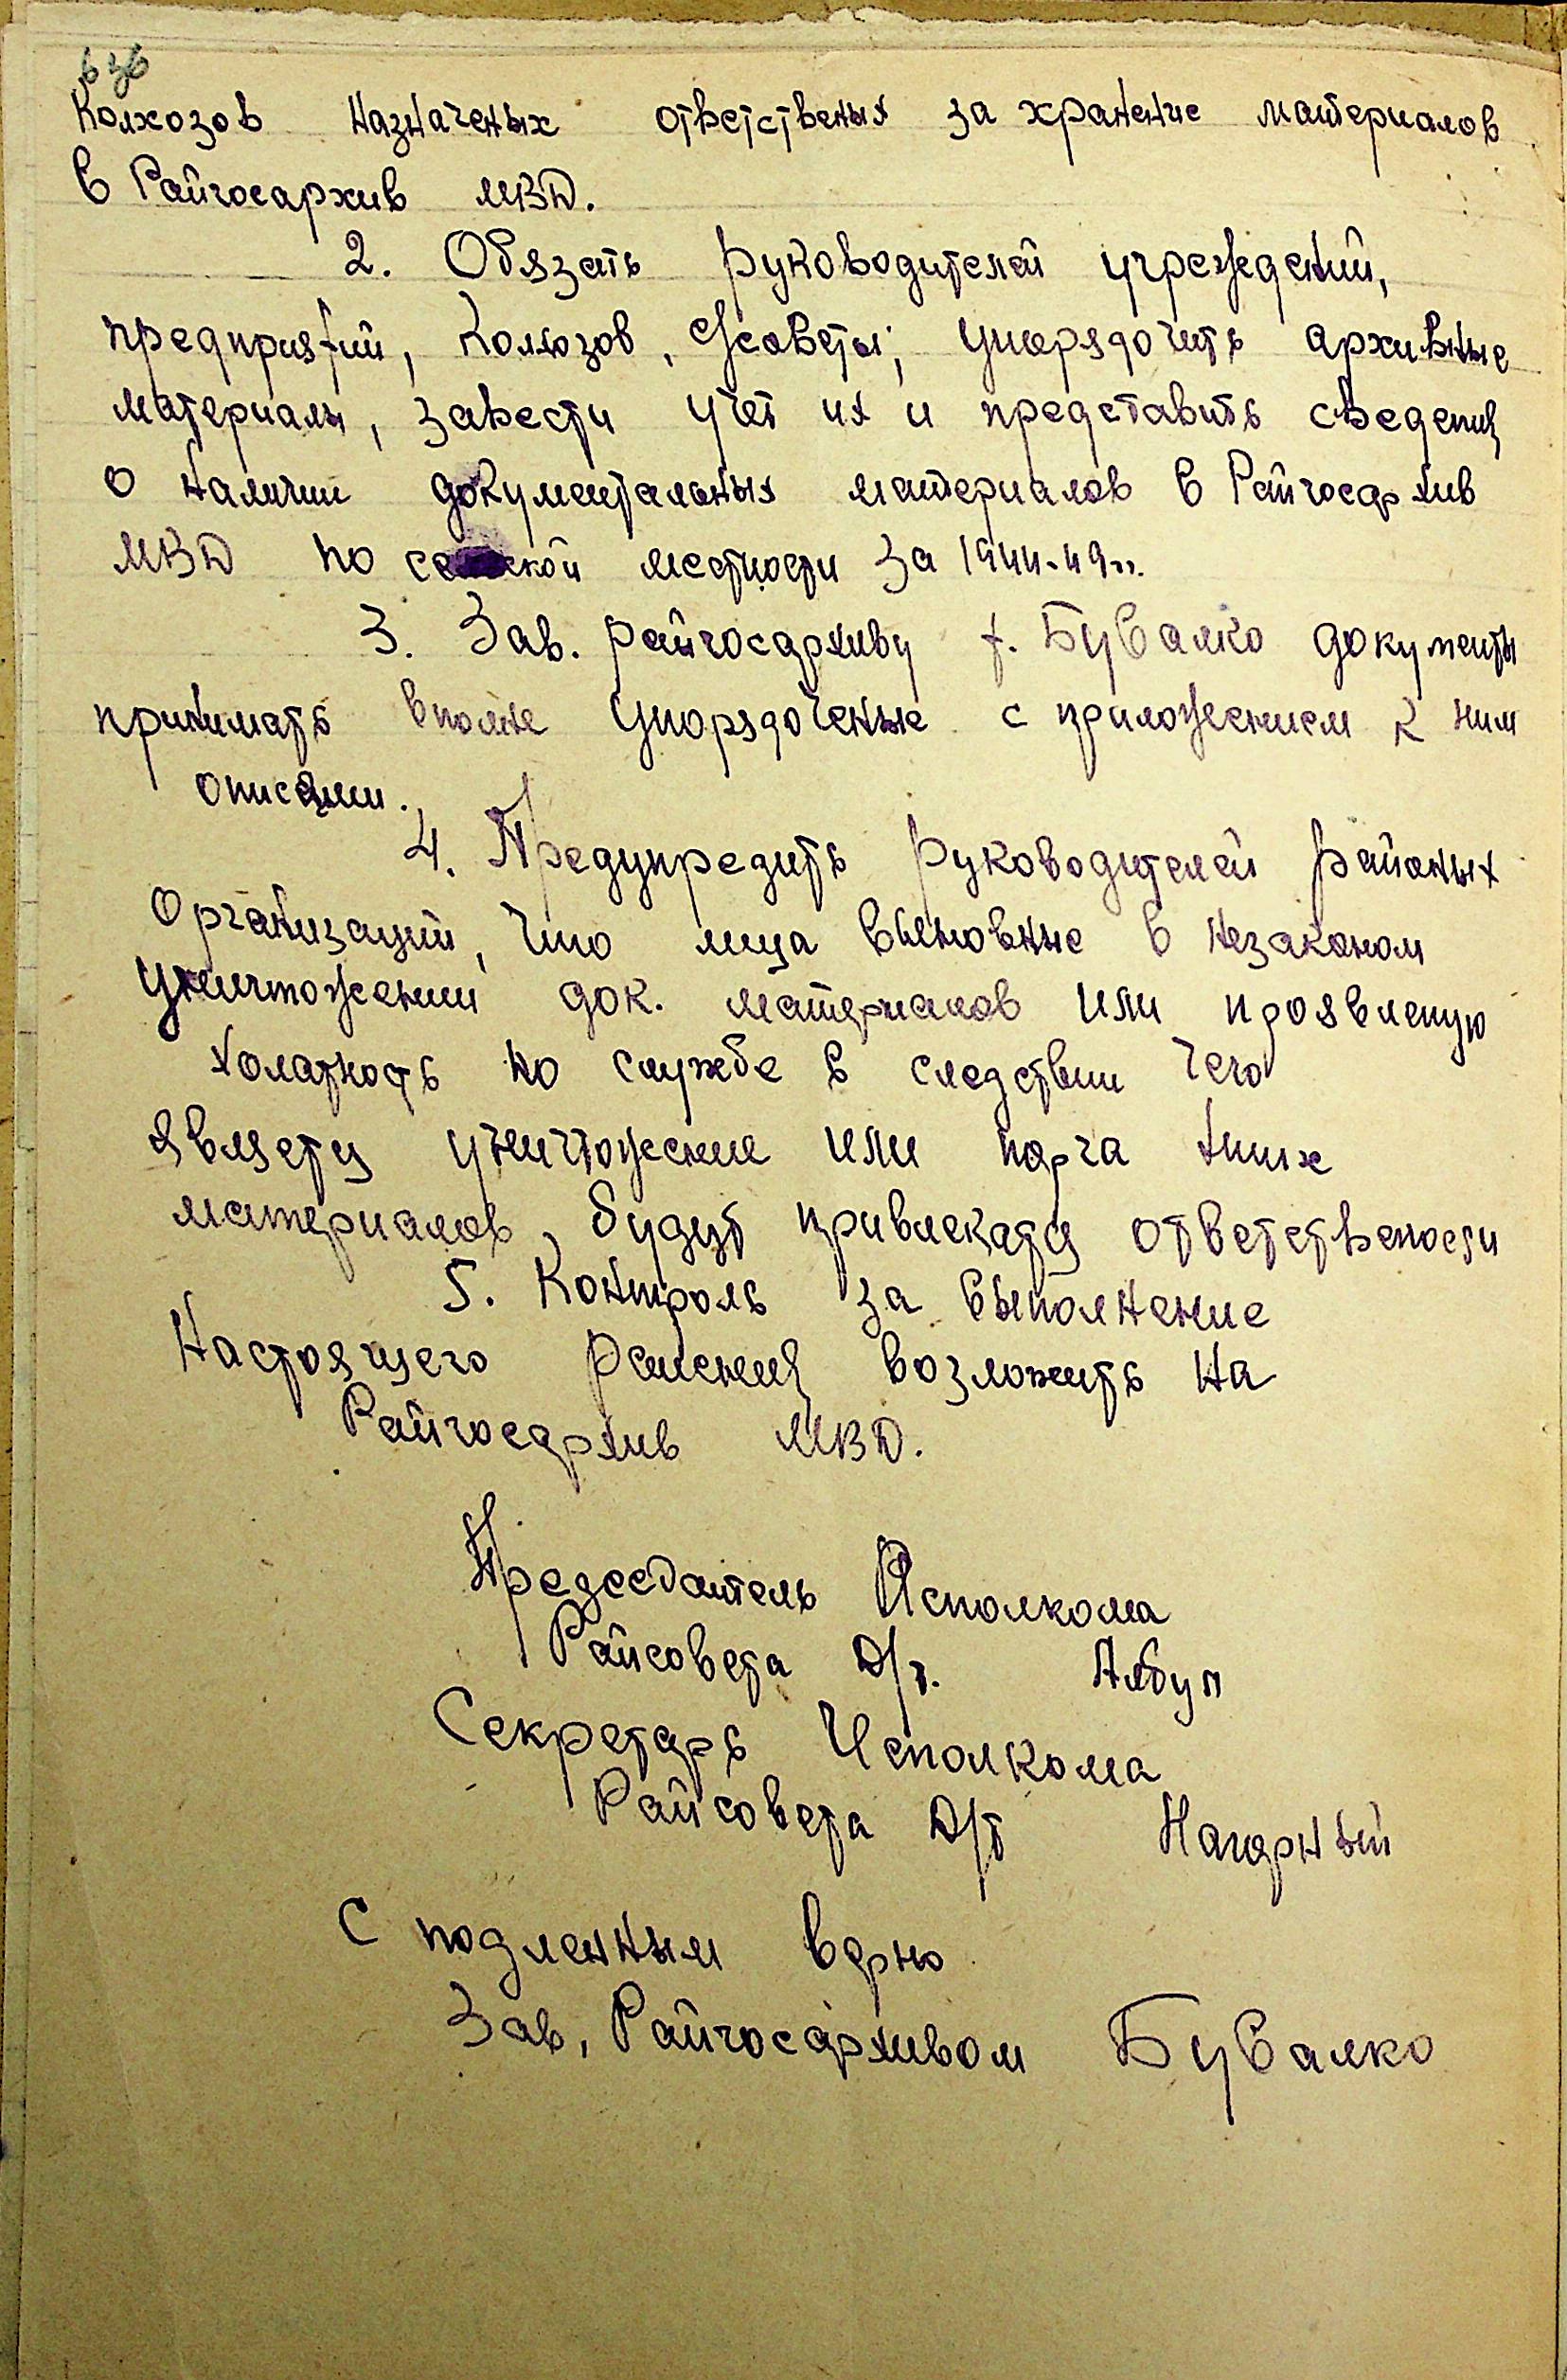 Колхозов назначеных ответственых за хранение материалов
в Райгосархив МВД.
2. Обязать руководителей учреждений,
предприятий, Колхозов, с/советы; упорядочить архивные
материалы, завести учет их и представить сведения
о наличии документальных материалов в Райгосархив
МВД по сельской местности за 1944-49 гг.
3. Зав. райгосархиву т. Бувалко документы
принимать вполне упорядоченые с приложением к ним
описями.
4. Предупредить руководителей районых
Организаций, что лица виновные в незаконом
уничтожении док. материалов или проявленую
холатность по службе в следствии чего
явлется уничтожение или порча
материалов, будут привлекатся ответствености
5. Контроль за выполнение
Настоящего решения возложить на
Райгосархив МВД.
Председатель Исполкома
Райсовета Д/т. Албул
Секретарь Исполкома
Райсовета Д/т Нагарный
С подленным верно
Зав, Райгосархивом Бувалко